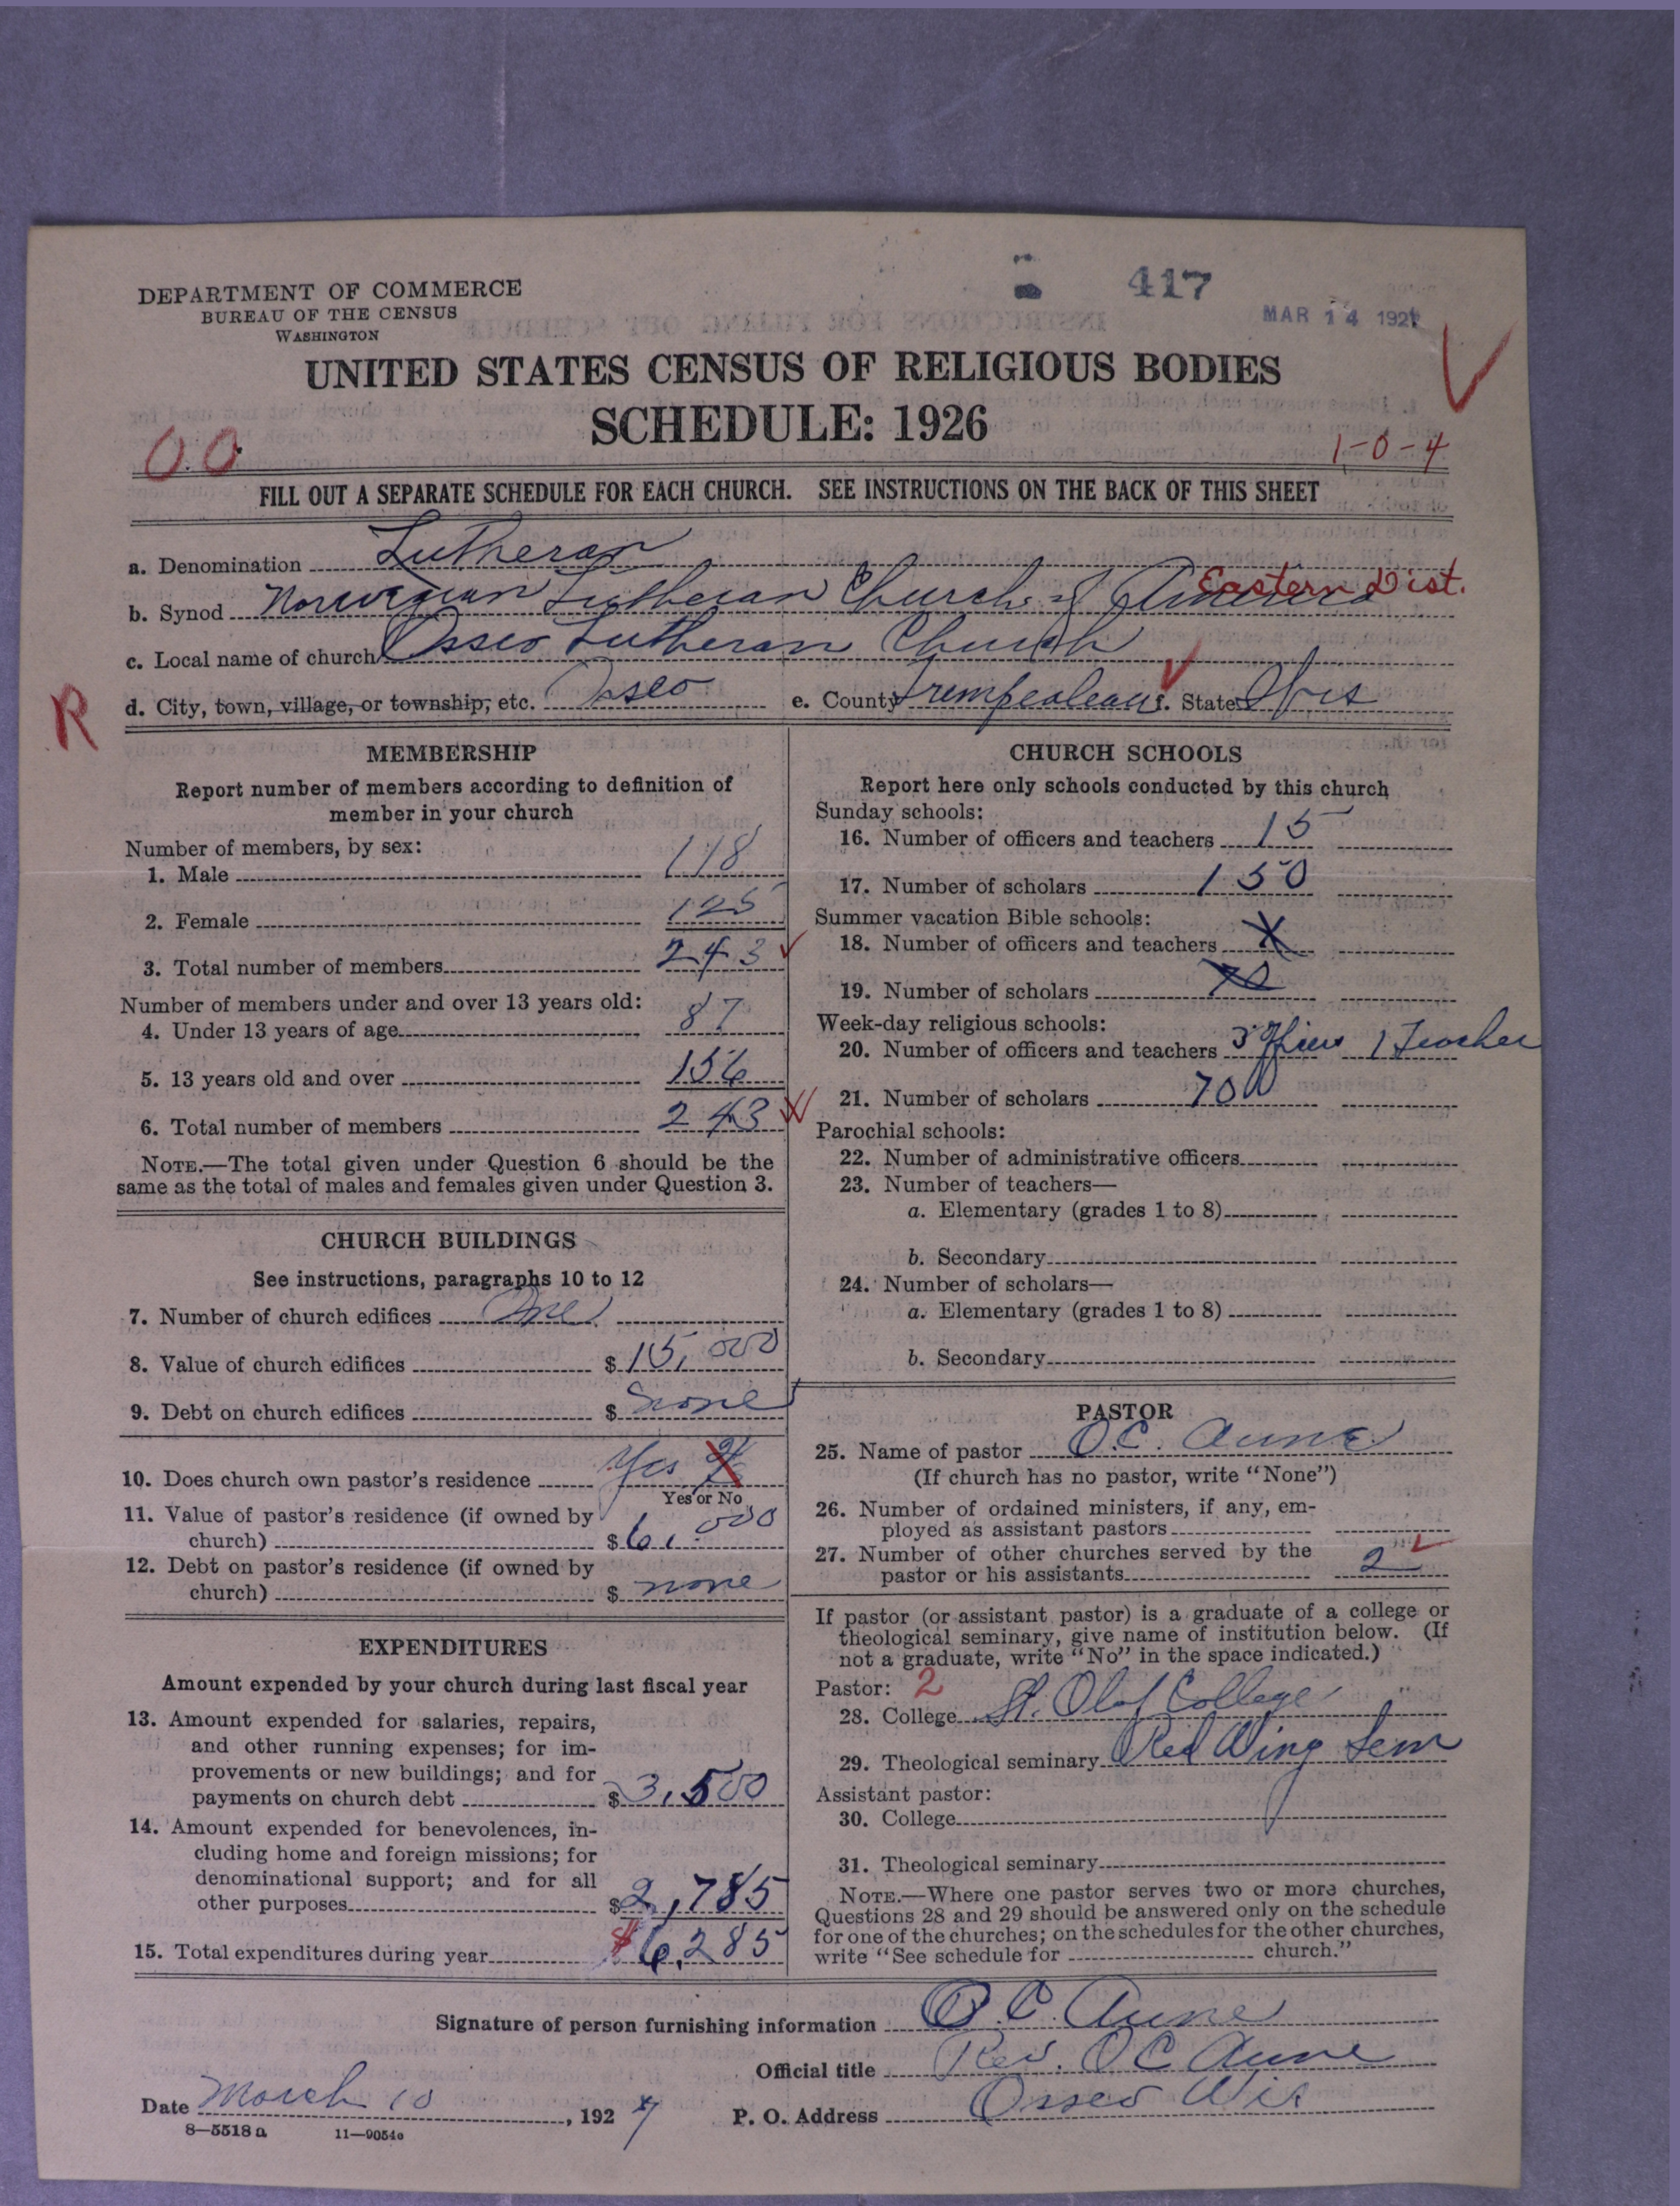 417
MAR 14 1927
DEPARTMENT OF COMMERCE
BUREAU OF THE CENSUS
WASHINGTON
UNITED STATES CENSUS OF RELIGIOUS BODIES
SCHEDULE: 1926
1-0-4
FILL OUT A SEPARATE SCHEDULE FOR EACH CHURCH. SEE INSTRUCTIONS ON THE BACK OF THIS SHEET
a. Denomination Lutheran
b. Synod Norwegian Lutheran Church of America Eastern Dist.
c. Local name of church Osseo Lutheran Church
R
d. City, town, village, or township, etc. Osseo e. County Trempealeau f. State Wis
MEMBERSHIP
Report number of members according to definition of
member in your church
Number of members, by sex:
1. Male 118
2. Female 125
3. Total number of members 243
Number of members under and over 13 years old:
4. Under 13 years of age 87
5. 13 years old and over 156
6. Total number of members 243
NOTE.—The total given under Question 6 should be the
same as the total of males and females given under Question 3.
CHURCH BUILDINGS
See instructions, paragraphs 10 to 12
7. Number of church edifices One
8. Value of church edifices $15,000
9. Debt on church edifices $ none
10. Does church own pastor's residence Yes
Yes or No
11. Value of pastor's residence (if owned by
church) $6,000
12. Debt on pastor's residence (if owned by
church) $ none
EXPENDITURES
Amount expended by your church during last fiscal year
13. Amount expended for salaries, repairs,
and other running expenses; for im-
provements or new buildings; and for
payments on church debt $3,500
14. Amount expended for benevolences, in-
cluding home and foreign missions; for
denominational support; and for all
other purposes $2,785
15. Total expenditures during year $6,285
CHURCH SCHOOLS
Report here only schools conducted by this church
Sunday schools:
16. Number of officers and teachers 15
17. Number of scholars 150
Summer vacation Bible schools:
18. Number of officers and teachers X
19. Number of scholars
Week-day religious schools:
20. Number of officers and teachers 3 Officers 1 Teacher
21. Number of scholars 70
Parochial schools:
22. Number of administrative officers
23. Number of teachers—
a. Elementary (grades 1 to 8)
b. Secondary
24. Number of scholars—
a. Elementary (grades 1 to 8)
b. Secondary
PASTOR
25. Name of pastor O.C. Aune
(If church has no pastor, write "None")
26. Number of ordained ministers, if any, em-
ployed as assistant pastors
27. Number of other churches served by the
pastor or his assistants 2
If pastor (or assistant pastor) is a graduate of a college or
theological seminary, give name of institution below. (If
not a graduate, write "No" in the space indicated.)
Pastor: 2
28. College St. Olaf College
29. Theological seminary Red Wing Sem
Assistant pastor:
30. College
31. Theological seminary
NOTE.—Where one pastor serves two or more churches,
Questions 28 and 29 should be answered only on the schedule
for one of the churches; on the schedules for the other churches,
write "See schedule for church."
Signature of person furnishing information O.C. Aune
Official title Rev. O C Aune
Date March 10, 1927 P. O. Address Osseo Wis
8—5518 a 11—9054c